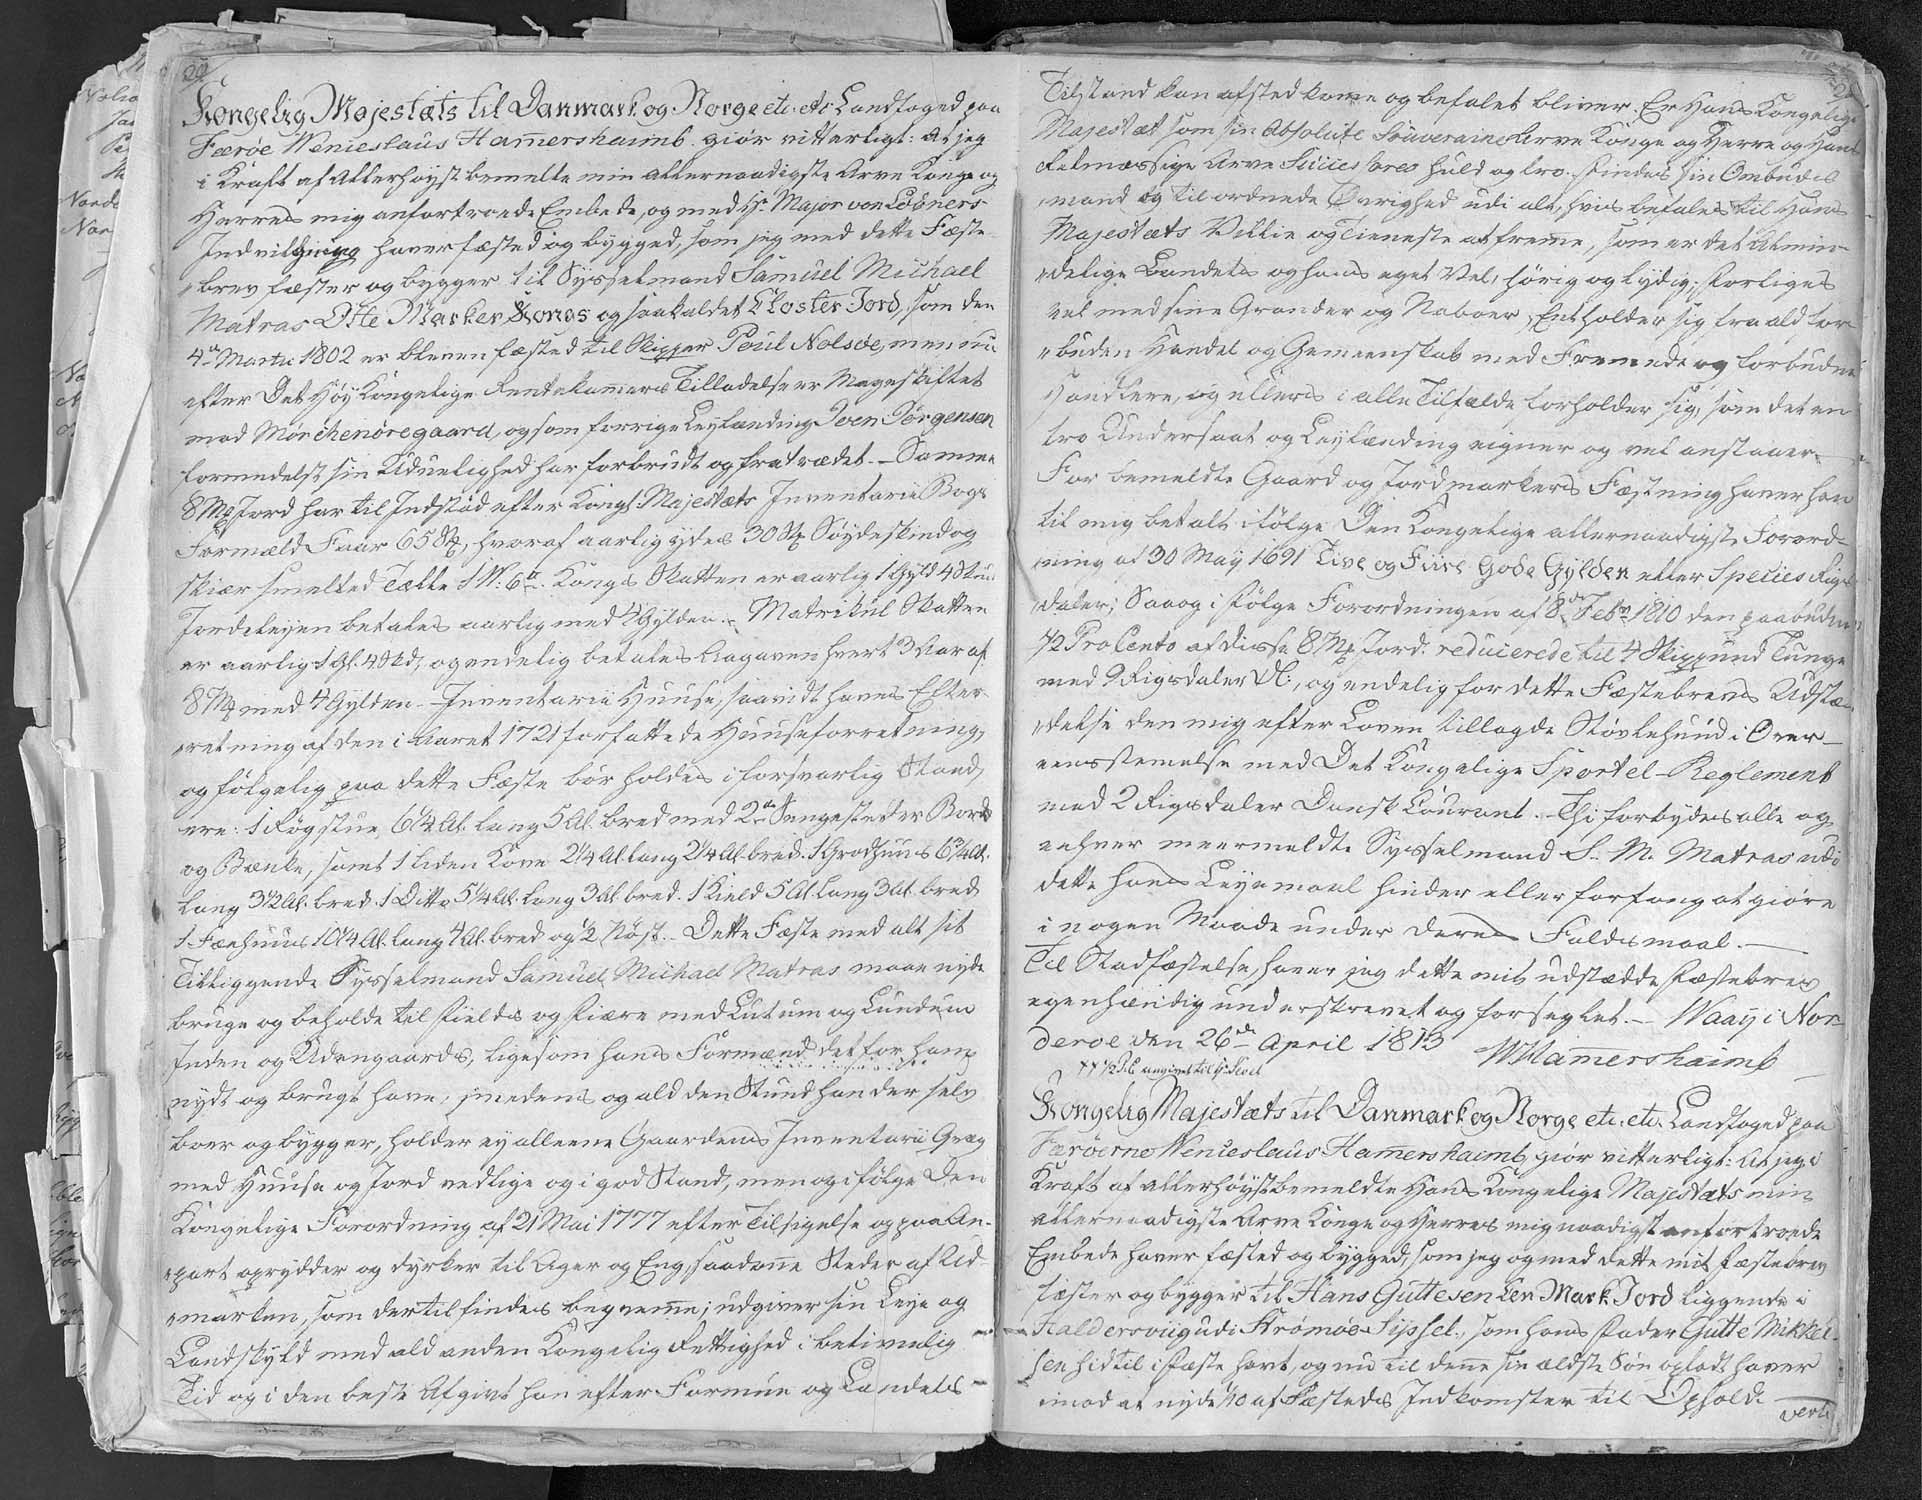 Kongelig Majestæts til Danmark og Norge etc. etc. Landfoged paa
Færøe Wenceslaus Hamershaimb. giør vitterligt: At jeg
i Kraft af Allerhøyst bemelte min allernaadigste Arve Konge og
Herres mig anfortroede Embede, og med Hr. Major von Löbners
Indvilgning haver fæsted og bygged, som jeg med dette Fæste
brev fæster og bygger til Sysselmand Samuel Michael
Matras Otte Marker Konge og saakaldet Closter Jord, som den
4de Martii 1802 er bleven fæsted til Skipper Poul Nolsøe, men nu
efter Det Høy Kongelige Rentekamers Tilladelse er Mageskiftet
mod Mørchenøregaard, og som forrige Leylænding Joen Jørgensen
formedelst sin Uduelighed har forbrudt og fratrædet. – Samme
8 Mk Jord har til Indstød efter Kongl. Majestæts Inventarii Bogs
Formæld Faar 65 Stk, hvoraf aarlig ydes 30 Stk Søydeskind og
skiær smelted Tælle 1 W: 6 tt. Kongs Skatten er aarlig 1 Gyld 4 Skind
Jordeleyen betales aarlig med 4 Gylden. – Matrikul Skatten
er aarlig 1 Gl. 4 Skd, og endelig betales Aagaven hvert 3 Aar af
8 Mk med 4 Gylden – Inventarii Huuse, saavidt haves Efter-
retning af den i Aaret 1721 forfattede Huuseforretning,
og følgelig paa dette Fæste bør holdes i forsvarlig Stand,
ere: 1 Røgstue 6¼ Al. lang 5 Al. bred med 2de Sengesteder Bord
og Bænke, samt 1 liden Kove 2¼ Al. lang 2¼ Al. bred. 1 Brødhuus 6¾ Al.
lang 3½ Al. bred. 1 Ditto 5¼ Al. lang 3 Al. bred. 1 Kield 5 Al. lang 3 Al. bred
1 Fæehuus 10¼ Al. lang 4 Al. bred og ½ Nøst. – Dette Fæste med alt sit
Tilliggende Sysselmand Samuel Michael Matras maae nyde
bruge og beholde til Fields og Fiære med Lutum og Lundum
Inden og Udengaards, ligesom hans Formænd det for ham
nydt og brugt have, imedens og ald den Stund han der selv
boer og bygger, holder ey alleene Gaardens Inventarii Qvæg
med Huuse og Jord vedlige og i god Stand, men og ifølge Den
Kongelige Forordning af 21 Mai 1777 efter Tilsigelse og paa An-
part oprydder og dyrker til Ager og Eng saadanne Steder af Ud-
marken, som dertil findes beqvemme; udgiver sin Leye og
Landskyld med ald anden Kongelig Rettighed i betimelig
Tid og i den beste Afgivt han efter Formue og Landets
Tilstand kan afstedkome og befalet bliver. Er Hans Kongelige
Majestæt som sin Absolute Souveraine Arve Konge og Herre og Hans
Retmæssige Arve Successores huld og tro. Findes sin Ombuds
mand og tilordnede Øvrighed udi alt, hvis befales til Hans
Majestæts Villie og Tieneste at freme, som er det Almin-
delige Landets og hans eget Vel, hørig og lydig; forliges
vel med sine Grander og Naboer, Entholder sig fra ald for-
buden Handel og Gemeenskab med Fremede og forbudne
Handlere, og ellers i alle Tilfælde forholder sig, som det en
tro Undersaat og Leylænding eigner og vel anstaaer.
For bemeldte Gaard og Jordmarkers Fæstning haver han
til mig betalt ifølge Den Kongelige allernaadigste Forord-
ning af 30 May 1691 Tive og Fiire Gode Gylden eller Species Rigs-
daler; Saa og i Følge Forordningen af 8de Febr 1810 den paabudne
½ Pro Cento af disse 8 Mk Jord reducerede til 4 Skippund Tunge
med 2 Rigsdaler DC:, og endelig for dette Fæstebrevs Udstæ-
delse den mig efter Loven tillagde Støvlehund i Over-
eensstemelse med Det Kongelige Sportel-Reglement
med 2 Rigsdaler Dansk Courant. – Thi forbydes alle og
enhver meermeldte Sysselmand S. M. Matras udi
dette hans Leyemaal hinder eller forfang at giøre
i nogen Maade under deres Faldsmaal. –
Til Stadfæstelse, haver jeg dette mit udstædde Fæstebrev
egenhændig underskrevet og forseglet. – Waay i Nor-
deroe den 26de April 1813 WHamershaimb
½ P.C. angivet til
Kongelig Majestæts til Danmark og Norge etc. etc. Landfoged paa
Færöerne Wenceslaus Hamershaimb, giør vitterligt: At jeg i
Kraft af allerhøystbemeldte Hans Kongelige Majestæts min
allernaadigste Arve Konge og Herres mig naadigst anfortroede
Embede haver fæsted og bygged, som jeg og med dette mit Fæstebrev
fæster og bygger til Hans Guttesen Een Mark Jord liggende i
Haldersviig udi Strømøe Syssel, som hans Fader Gutte Mikkel-
sen hidtil i Fæste havt, og nu til denne sin ældste Søn opladt haver
imod at nyde 1/10 af Fæstets Indkomster til Ophold.
verte